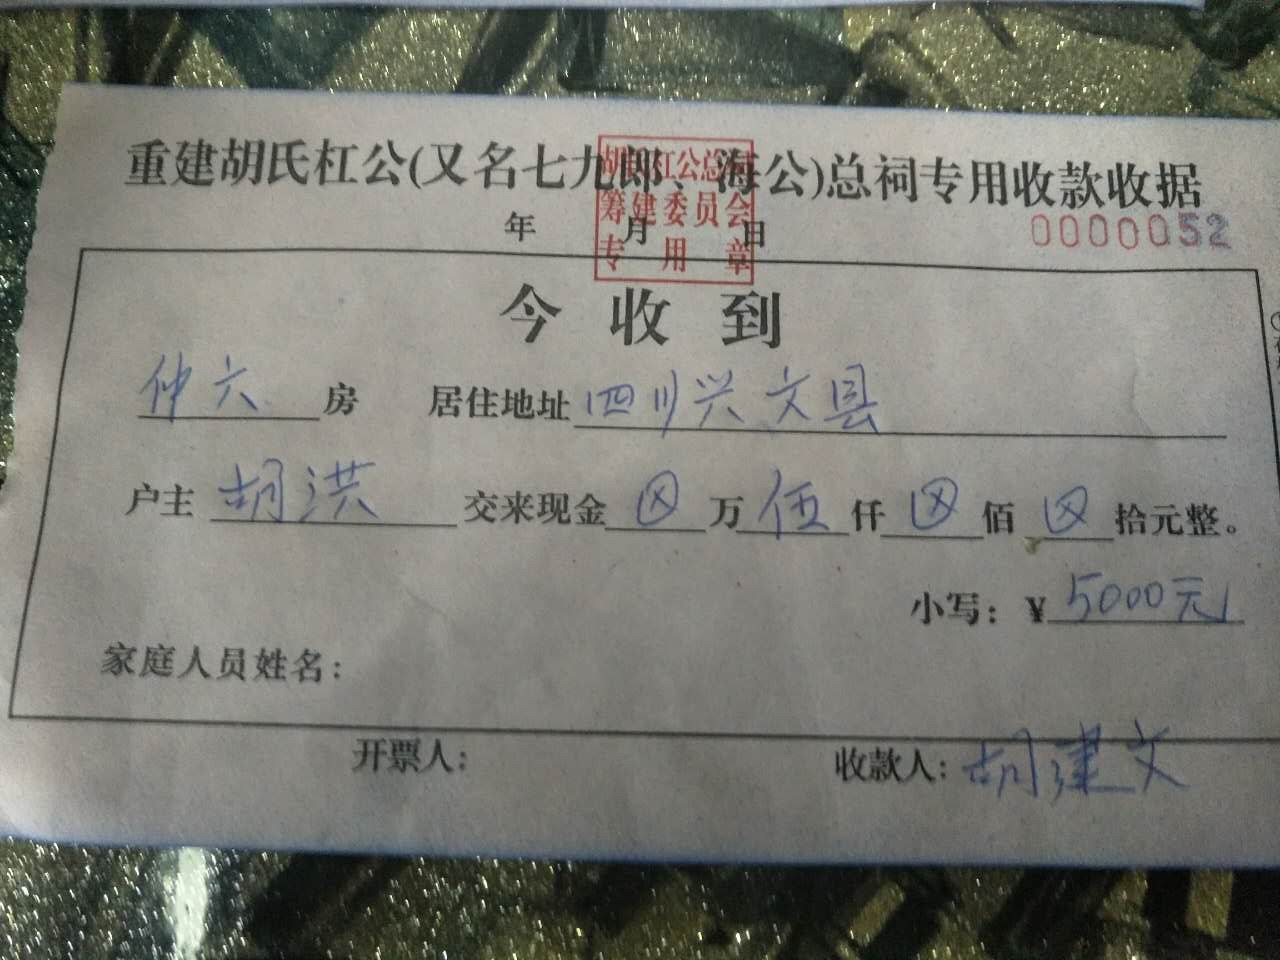 重建胡氏杠公(又名七九郎、海公)总祠专用收款收据
胡氏杠公总祠
筹建委员会
专用章
年 月 日
0000052
今收到
仲六房 居住地址 四川兴文县
户主 胡洪 交来现金 ⊗ 万 伍 仟 ⊗ 佰 ⊗ 拾元整。
小写：¥ 5000元
家庭人员姓名：
开票人： 收款人：胡建文